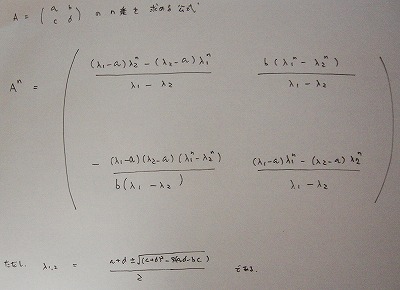 A = ( a b c d ) の n 乗を 求める 公式
A^n = ( ((λ1-a)λ2^n - (λ2-a)λ1^n) / (λ1 - λ2)    b(λ1^n - λ2^n) / (λ1 - λ2)
- (λ1-a)(λ2-a)(λ1^n-λ2^n) / b(λ1 - λ2)    ((λ1-a)λ1^n - (λ2-a)λ2^n) / (λ1 - λ2) )
ただし、 λ1,2 = (a+d ± √((a+d)² - 4(ad-bc))) / 2 である.